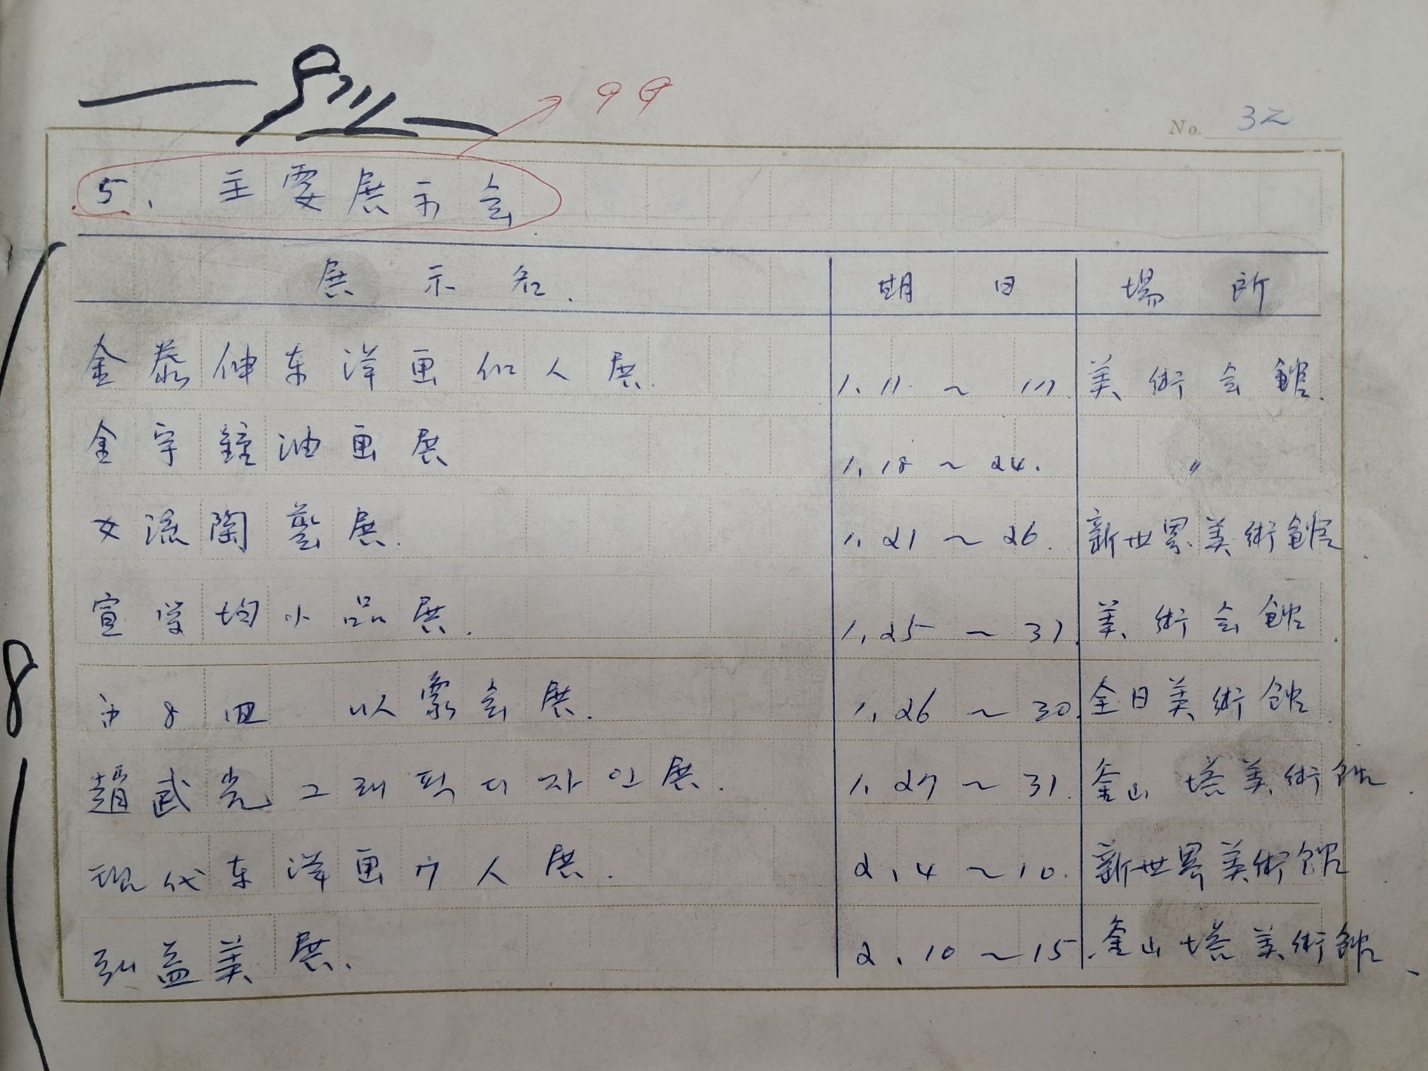 99
No. 32
5. 主要展示会
展示名. 期日 場所
金泰伸东洋画個人展. 1.11 ~ 17. 美術会館.
金宇鐘油画展 1.18 ~ 24. 〃
女流陶藝展. 1.21 ~ 26. 新世界美術館.
宣学均小品展. 1.25 ~ 31. 美術会館.
展. 1.26 ~ 30. 全日美術館
趙武光 그래픽디자인展. 1.27 ~ 31. 釜山塔美術館.
現代东洋画 人展. 2.4 ~ 10. 新世界美術館.
弘益美展. 2.10 ~ 15. 釜山塔美術館.
8